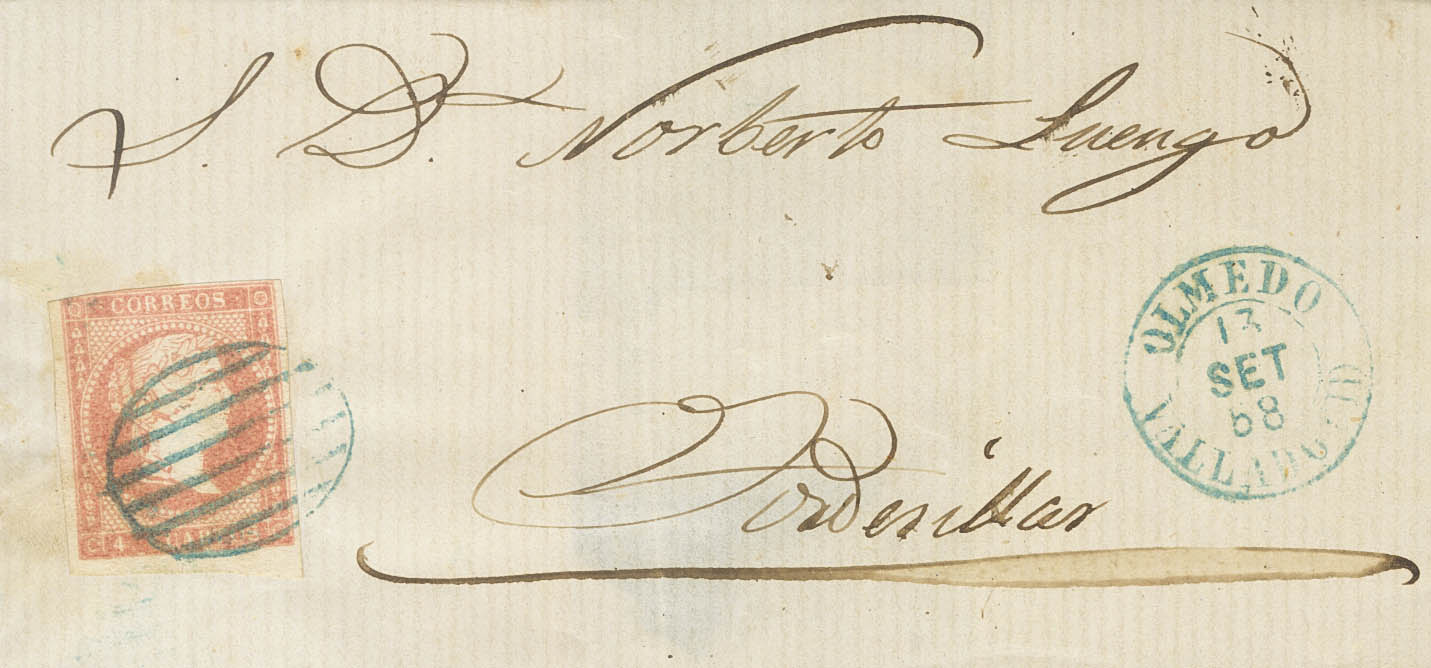 S. D. Norberto Luengo
CORREOS
4 CUARTOS
OLMEDO
13
SET
58
VALLADOLID
Tordesillas